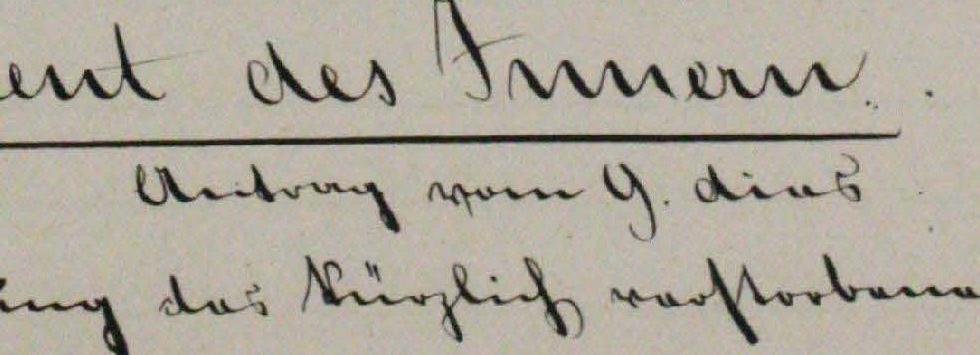 ent des Innern.
Antrag vom 9. dies
ung des kürzlich verstorbene